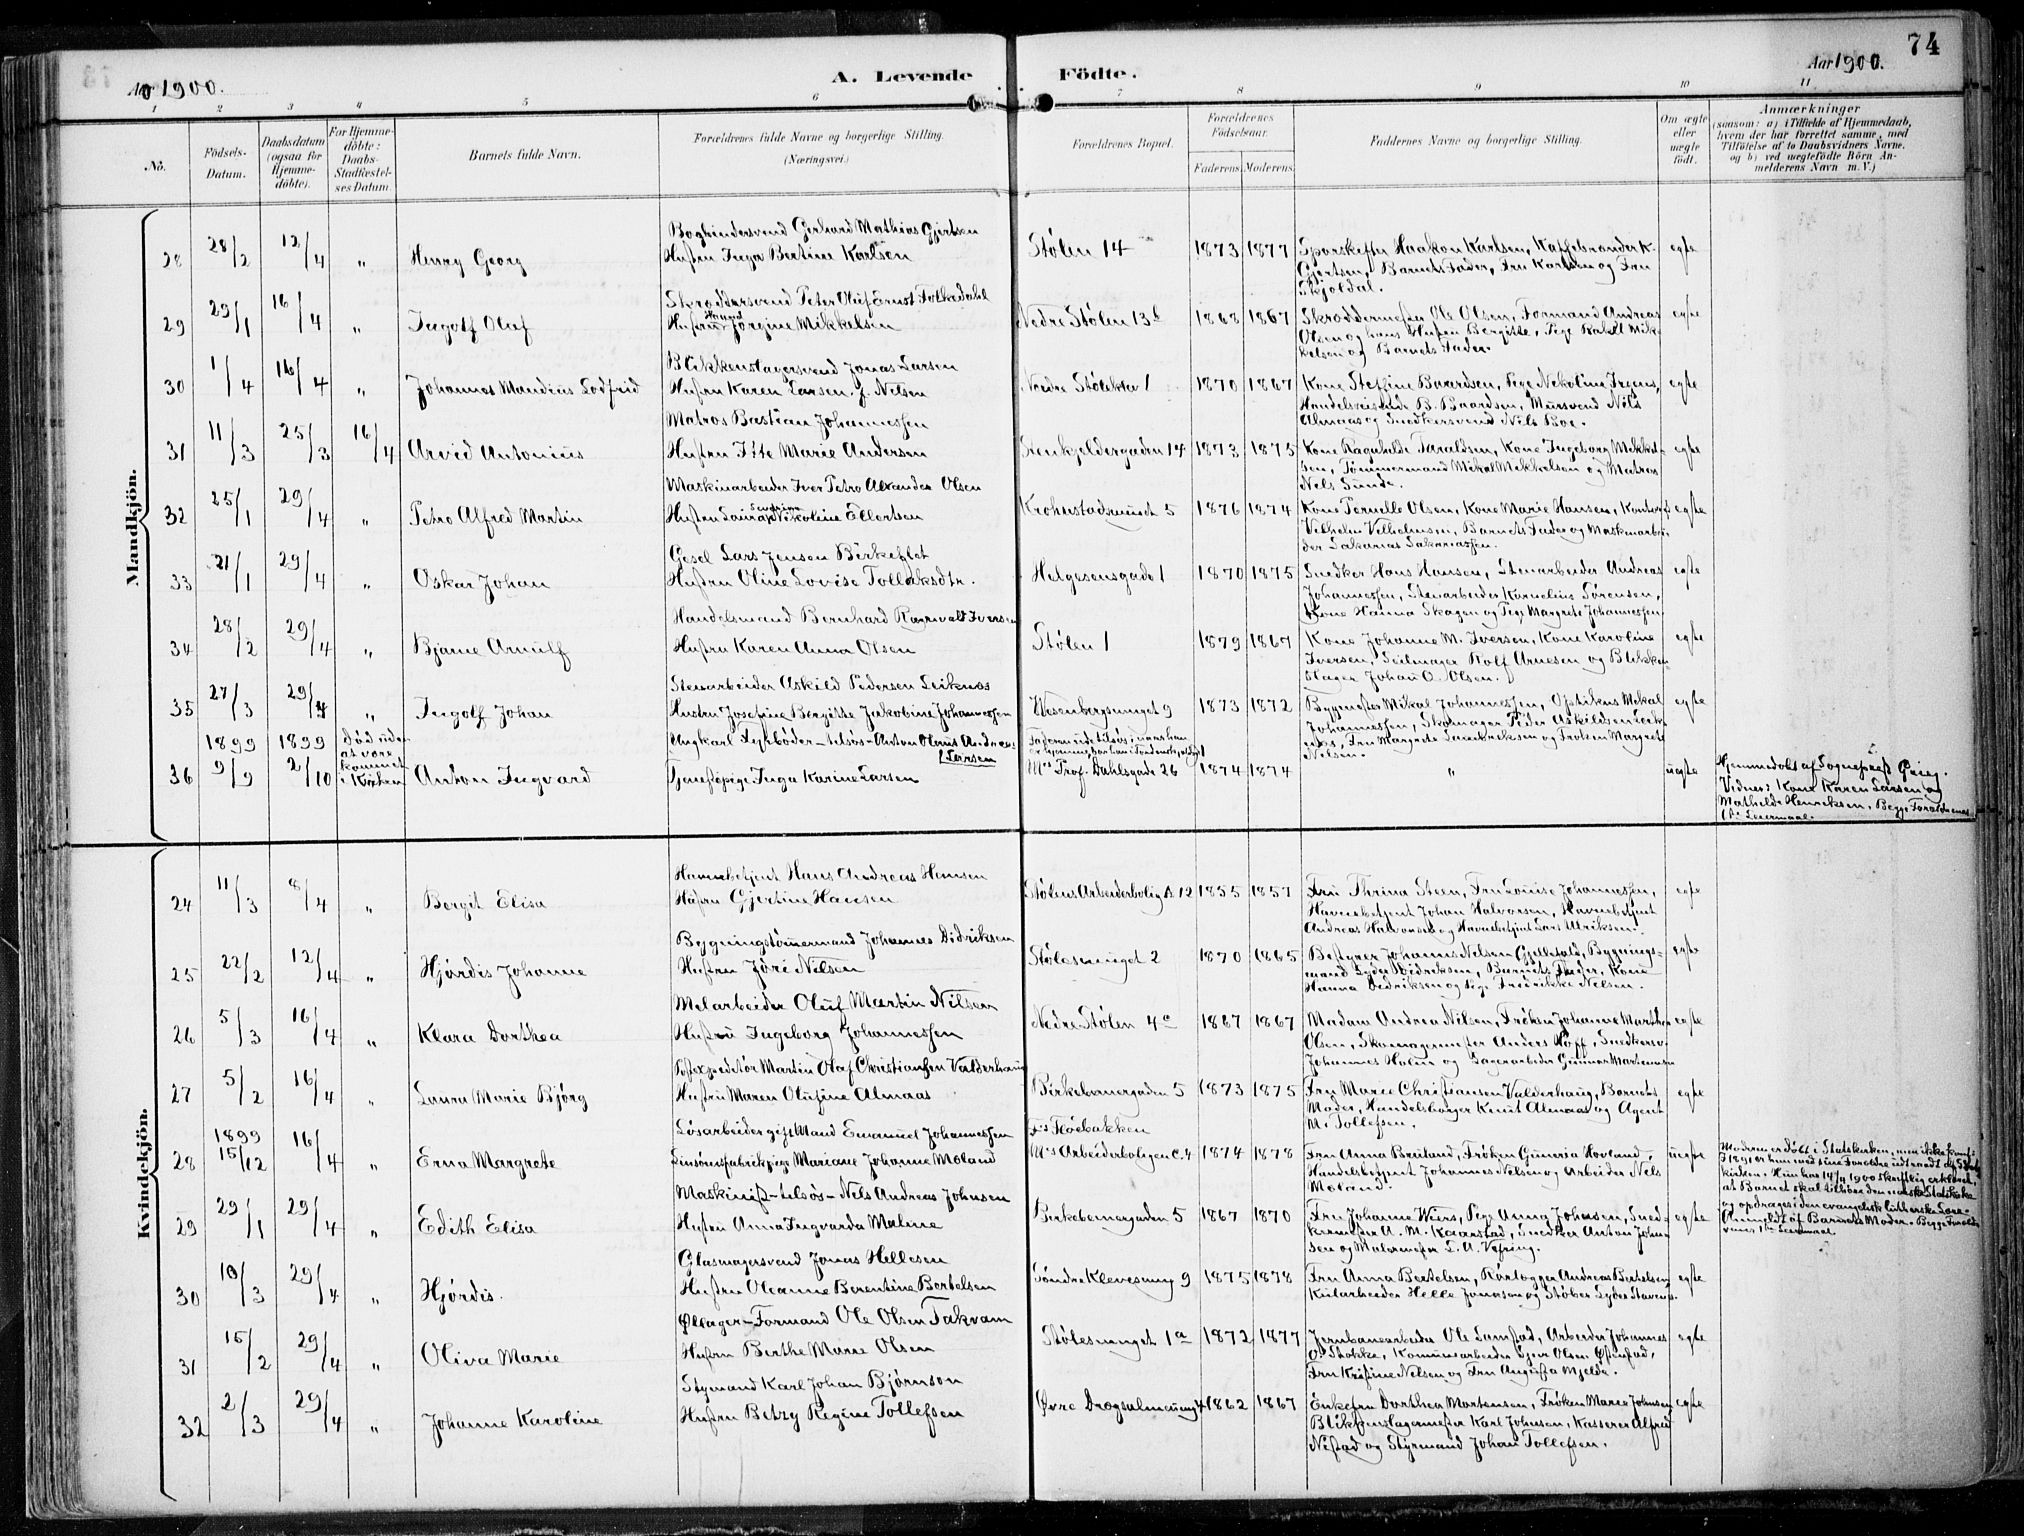 74
Aar 1900.
A. Levende
Födte.
Aar 1900.
1 2 3 4 5 6 7 8 9 10 11
No.
Födsels-Datum.
Daabsdatum (ogsaa for Hjemmedöbte).
For Hjemmedöbte: Daabs-Stadfæstelses Datum.
Barnets fulde Navn.
Forældrenes fulde Navne og borgerlige Stilling.
(Næringsvei.)
Forældrenes Bopæl.
Forældrenes Födselsaar.
Faderens. Moderens.
Faddernes Navne og borgerlige Stilling.
Om ægte eller uægte födt.
Anmærkninger
(saasom: a) i Tilfælde af Hjemmedaab, hvem der har forrettet samme, med Tilföielse af to Daabsvidners Navne, og b) ved uægtefödte Börn Anmelderens Navn m. V.)
Mandkjön.
28 28/2 12/4 " Henry Georg
Bogbindersvend Gerhard Mathias Gjertsen
Hustru Inga Bertine Karlsen
Stølen 14 1873 1877
Haakon Karlsen, Kaffebrænder K.
Gjertsen, Barnets Fader, Fru Karlsen og Fru
Skjoldal.
egte
29 29/1 16/4 " Ingolf Oluf
Skræddersvend Peter Oluf Ernst Folkedahl
Hustru Jørgine Mikkelsen
Nedre Stølen 13b 1868 1867
Skræddermester Ole Olsen, Formand Andreas
Olsen og hans Hustru Bergitte, Pige Rakel Mikkelsen og Barnets Fader.
egte
30 1/4 16/4 " Johannes Mandius Lodfrid
Blikkenslagersvend Jonas Larsen
Hustru Karen Larsen f. Nilsen
Nedre 1 1870 1867
Kone Steffine Baardsen, Pige Nikolina Irgens,
Handelsreisende B. Baardsen, Mursvend Nils
Almaas og Snedkersvend Nils Boe.
egte
31 11/3 25/3 16/4 Arvid Antonius
Matros Bastian Johannessen
Hustru Marie Andersen
Stenkjeldergaden 14 1873 1875
Kone Ragnhilde Taraldsen, Kone Ingeborg Mikkelsen, Tømmermand Mikal Mikkelsen og Matros
Nels Sunde.
egte
32 25/1 29/4 " Petro Alfred Martin
Maskinarbeider Iver Petro Alexander Olsen
Hustru Laura Nikoline Ellertsen
Krohnstadsmuget 5 1876 1874
Kone Pernelle Olsen, Kone Marie Hansen,
Vilhelm Vilhelmsen, Barnets Fader og Maskinarbeider Sakarias Sakariassen.
egte
33 21/1 29/4 " Oskar Johan
Gesel Lars Jensen Birkeflet
Hustru Oline Lovise Tollaksdtr.
Helgesensgade 1 1870 1875
Snedker Hans Hansen, Stenarbeider Andreas
Johannessen, Stenarbeider Kornelius Sørensen,
Kone Hanna Skagen og Pige Margrete Johannessen
egte
34 28/2 29/4 " Bjarne Arnulf
Handelsmand Bernhard Iversen
Hustru Karen Anna Olsen
Stølen 1 1879 1867
Kone Johanne M. Iversen, Kone Karoline
Iversen, Seilmager Rolf Arnesen og Blikkenslager Johan O. Olsen.
egte
35 27/3 29/4 " Ingolf Johan
Stenarbeider Askild Pedersen Leiknes
Hustru Josefine Bergitte Jakobine Johannessen
Wesenbergsmuget 9 1873 1872
Bygmester Mikal Johannessen, Optikus Mikal
Johannessen, Skomager Peder Askildsen Leiknes, Fru Margrete og Frøken Margrete
Nelsen.
egte
36 1899 9/9 1899 2/10 Død uden at være kommet i Kirken Anton Ingvard
Ungkarl Fyrbøder - tilsøs - Anton Olaus Andreas Larsen
Tjenestepige Inga Karine Larsen
Ms Prof. Dahlsgade 26 1874 1874
"
uegte
Hjemmedøbt af Sognepræst Grieg.
Vidner: Kone Karen Larsen og
Mathilde Henriksen. Begge Forældrenes
1ste Leiermaal.
Kvindekjön.
24 11/3 8/4 " Bergit Elisa
Havnebetjent Hans Andreas Hansen
Hustru Gjertine Hansen
Stølens Arbeiderbolig A 12 1855 1857
Fru Thrina Steen, Fru Louise Johannessen,
Havnebetjent Johan Halvorsen, Havnebetjent
Andreas Halvorsen og Havnebetjent Lars Ulriksen.
egte
25 22/2 12/4 " Hjørdis Johanne
Bygningstømmermand Johannes Didriksen
Hustru Jøri Nilsen
Stølesmuget 2 1870 1865
Bestyrer Johannes Nelsen Gjellefald, Bygningsmand Lyder Didriksen, Barnets Fader, Kone
Hanna Didriksen og Pige Fredrikke Nelsen.
egte
26 5/3 16/4 " Klara Dorthea
Melarbeider Oluf Martin Nilsen
Hustru Ingeborg Johannessen
Nedre Stølen 4c 1867 1867
Madam Andrea Nilsen, Frøken Johanne Marthe
Olsen, Skomagermester Anders Hoff, Snedkersv.
Johannes Holm og Lagerarbeider Gunnar Martinusen
egte
27 5/2 16/4 " Laura Marie Bjørg
Martin Olaf Christiansen Valderhaug
Hustru Maren Olufine Almaas
Birkebeinergaden 5 1873 1875
Fru Marie Christiansen Valderhaug, Barnets
Moder, Handelsborger Knut Almaas og Agent
M. Tollefsen.
egte
28 1899 15/12 16/4 " Erna Margrete
Løsarbeider gift Mand Emanuel Johannessen
Mariane Johanne Moland
Fs Fløebakken
Ms Arbeiderboligen C. 4 1874 1878
Fru Anna Breiland, Frøken Gunvia Hovland,
Handelsbetjent Johannes Nelsen og Arbeider Nels
Moland.
uegte
Moderen er døbt i Statskirken, men ikke konf.
I 1891 er hun med sine Forældre udtraadt af Statskirken. Hun har 14/4 1900 skriftlig erklæret,
at Barnet skal tilhøre den norske Statskirke
og opdrages i den evangelisk lutherske Lære.
Anmeldt af Barnets Moder. Begge Forældrenes 1ste Leiermaal.
29 29/1 29/4 " Edith Elisa
Maskinist - tilsøs - Nels Andreas Johnsen
Hustru Anna Ingvarda Malme
Birkebeinergaden 5 1867 1870
Fru Johanne Wiers, Pige Anna Johnsen, Snedkermester A. M. Kaarstad, Snedker Anton Johnsen og Malermester L. A. Vefring.
egte
30 10/3 29/4 " Hjørdis.
Glasmagersvend Jonas Hellesen
Hustru Oleanne Berentine Bertelsen
Søndre Klevesmug 9 1875 1878
Fru Anna Bertelsen, Rørlægger Andreas Bertelsen,
Helle Jonassen og Støber Lyder Stavenes.
egte
31 15/2 29/4 " Oliva Marie
Øllager-Formand Ole Olsen Takvam
Hustru Berthe Marie Olsen
Stølesmuget 1a 1872 1877
Jernbanearbeider Ole Lunstad, Arbeider Johannes
O. Stokke, Kommunearbeider Sjur Olsen
Fru Kristine Nelsen og Fru Augusta Mjelde.
egte
32 2/3 29/4 " Johanne Karoline
Styrmand Karl Johan Bjørnson
Hustru Betzy Regine Tollefsen
Øvre Dregsalmenning 4 1862 1867
Enkefru Dorthea Mortensen, Frøken Marie Johnsen,
Blikkenslagermester Karl Johnsen, Kasserer Alfred
Nestad og Styrmand Johan Tollefsen.
egte